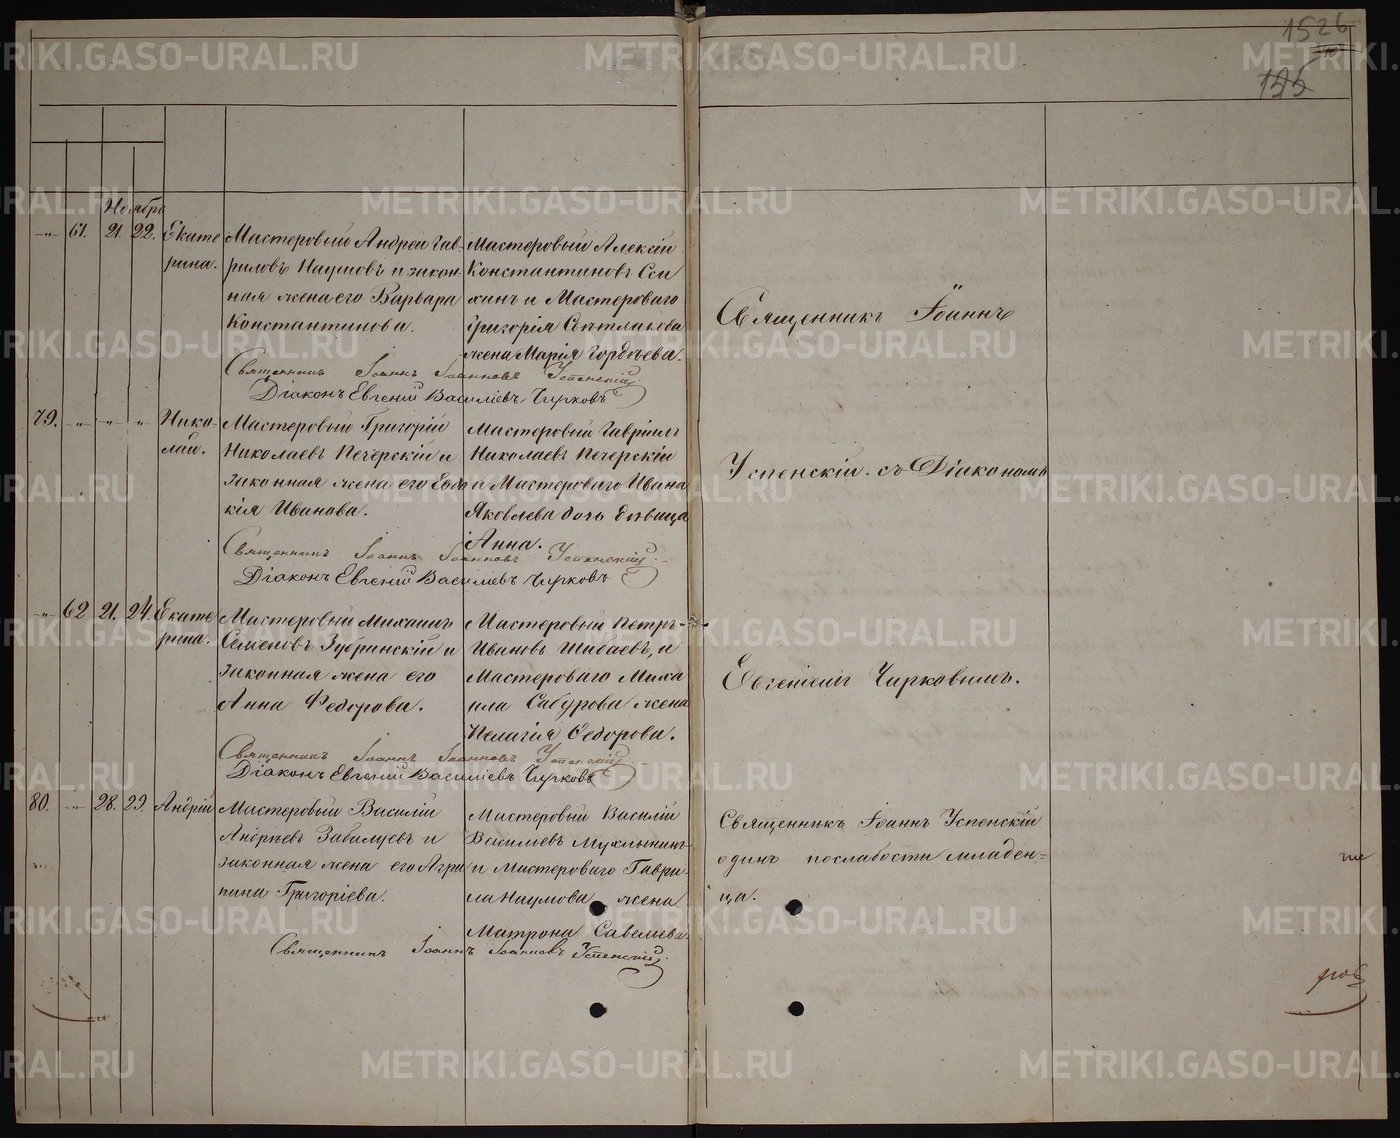 1526
155
Ноября
-„- 61. 21. 22. Екате
рина.
Мастеровый Андрей Гав-
риловъ Наумовъ и закон
ная жена его Варвара
Константинова.
Мастеровый Алексій
Константиновъ
и Мастероваго
Григорія
жена Марія Гордѣева.
Священникъ Іоаннъ Іоанновъ Успенскій
Діаконъ Евгеній Василіевъ Чирковъ
79. -„- -„- „ Нико-
лай.
Мастеровый Григорій
Николаевъ Печерскій и
законная жена его Евдо
кія Иванова.
Мастеровый Гавріилъ
Николаевъ Печерскій
и Мастероваго Ивана
Яковлева дочь дѣвица
Анна.
Священникъ Іоаннъ Іоанновъ Успенскій
Діаконъ Евгеній Василіевъ Чирковъ
-„- 62 21. 24. Екате
рина.
Мастеровый Михаилъ
Семеновъ Зубринскій и
законная жена его
Анна Федорова.
Мастеровый Петръ
Ивановъ Шибаевъ, и
Мастероваго Миха
ила Сабурова жена
Пелагія Ѳедорова.
Священникъ Іоаннъ Іоанновъ Успенскій
Діаконъ Евгеній Василіевъ Чирковъ
80. -„- 28. 29. Андрій
Мастеровый Василій
Андреевъ Забалуевъ и
законная жена его Агра
пина Григоріева.
Мастеровый Василій
Васильевъ Мухлынинъ
и Мастероваго Гаври-
ла Наумова жена
Матрона Савельева
Священникъ Іоаннъ Іоанновъ Успенскій
Священникъ Іоаннъ
Успенскій съ Діакономъ
Евгеніемъ Чирковымъ.
Священникъ Іоаннъ Успенскій
одинъ послабости младен=
ца.
METRIKI.GASO-URAL.RU